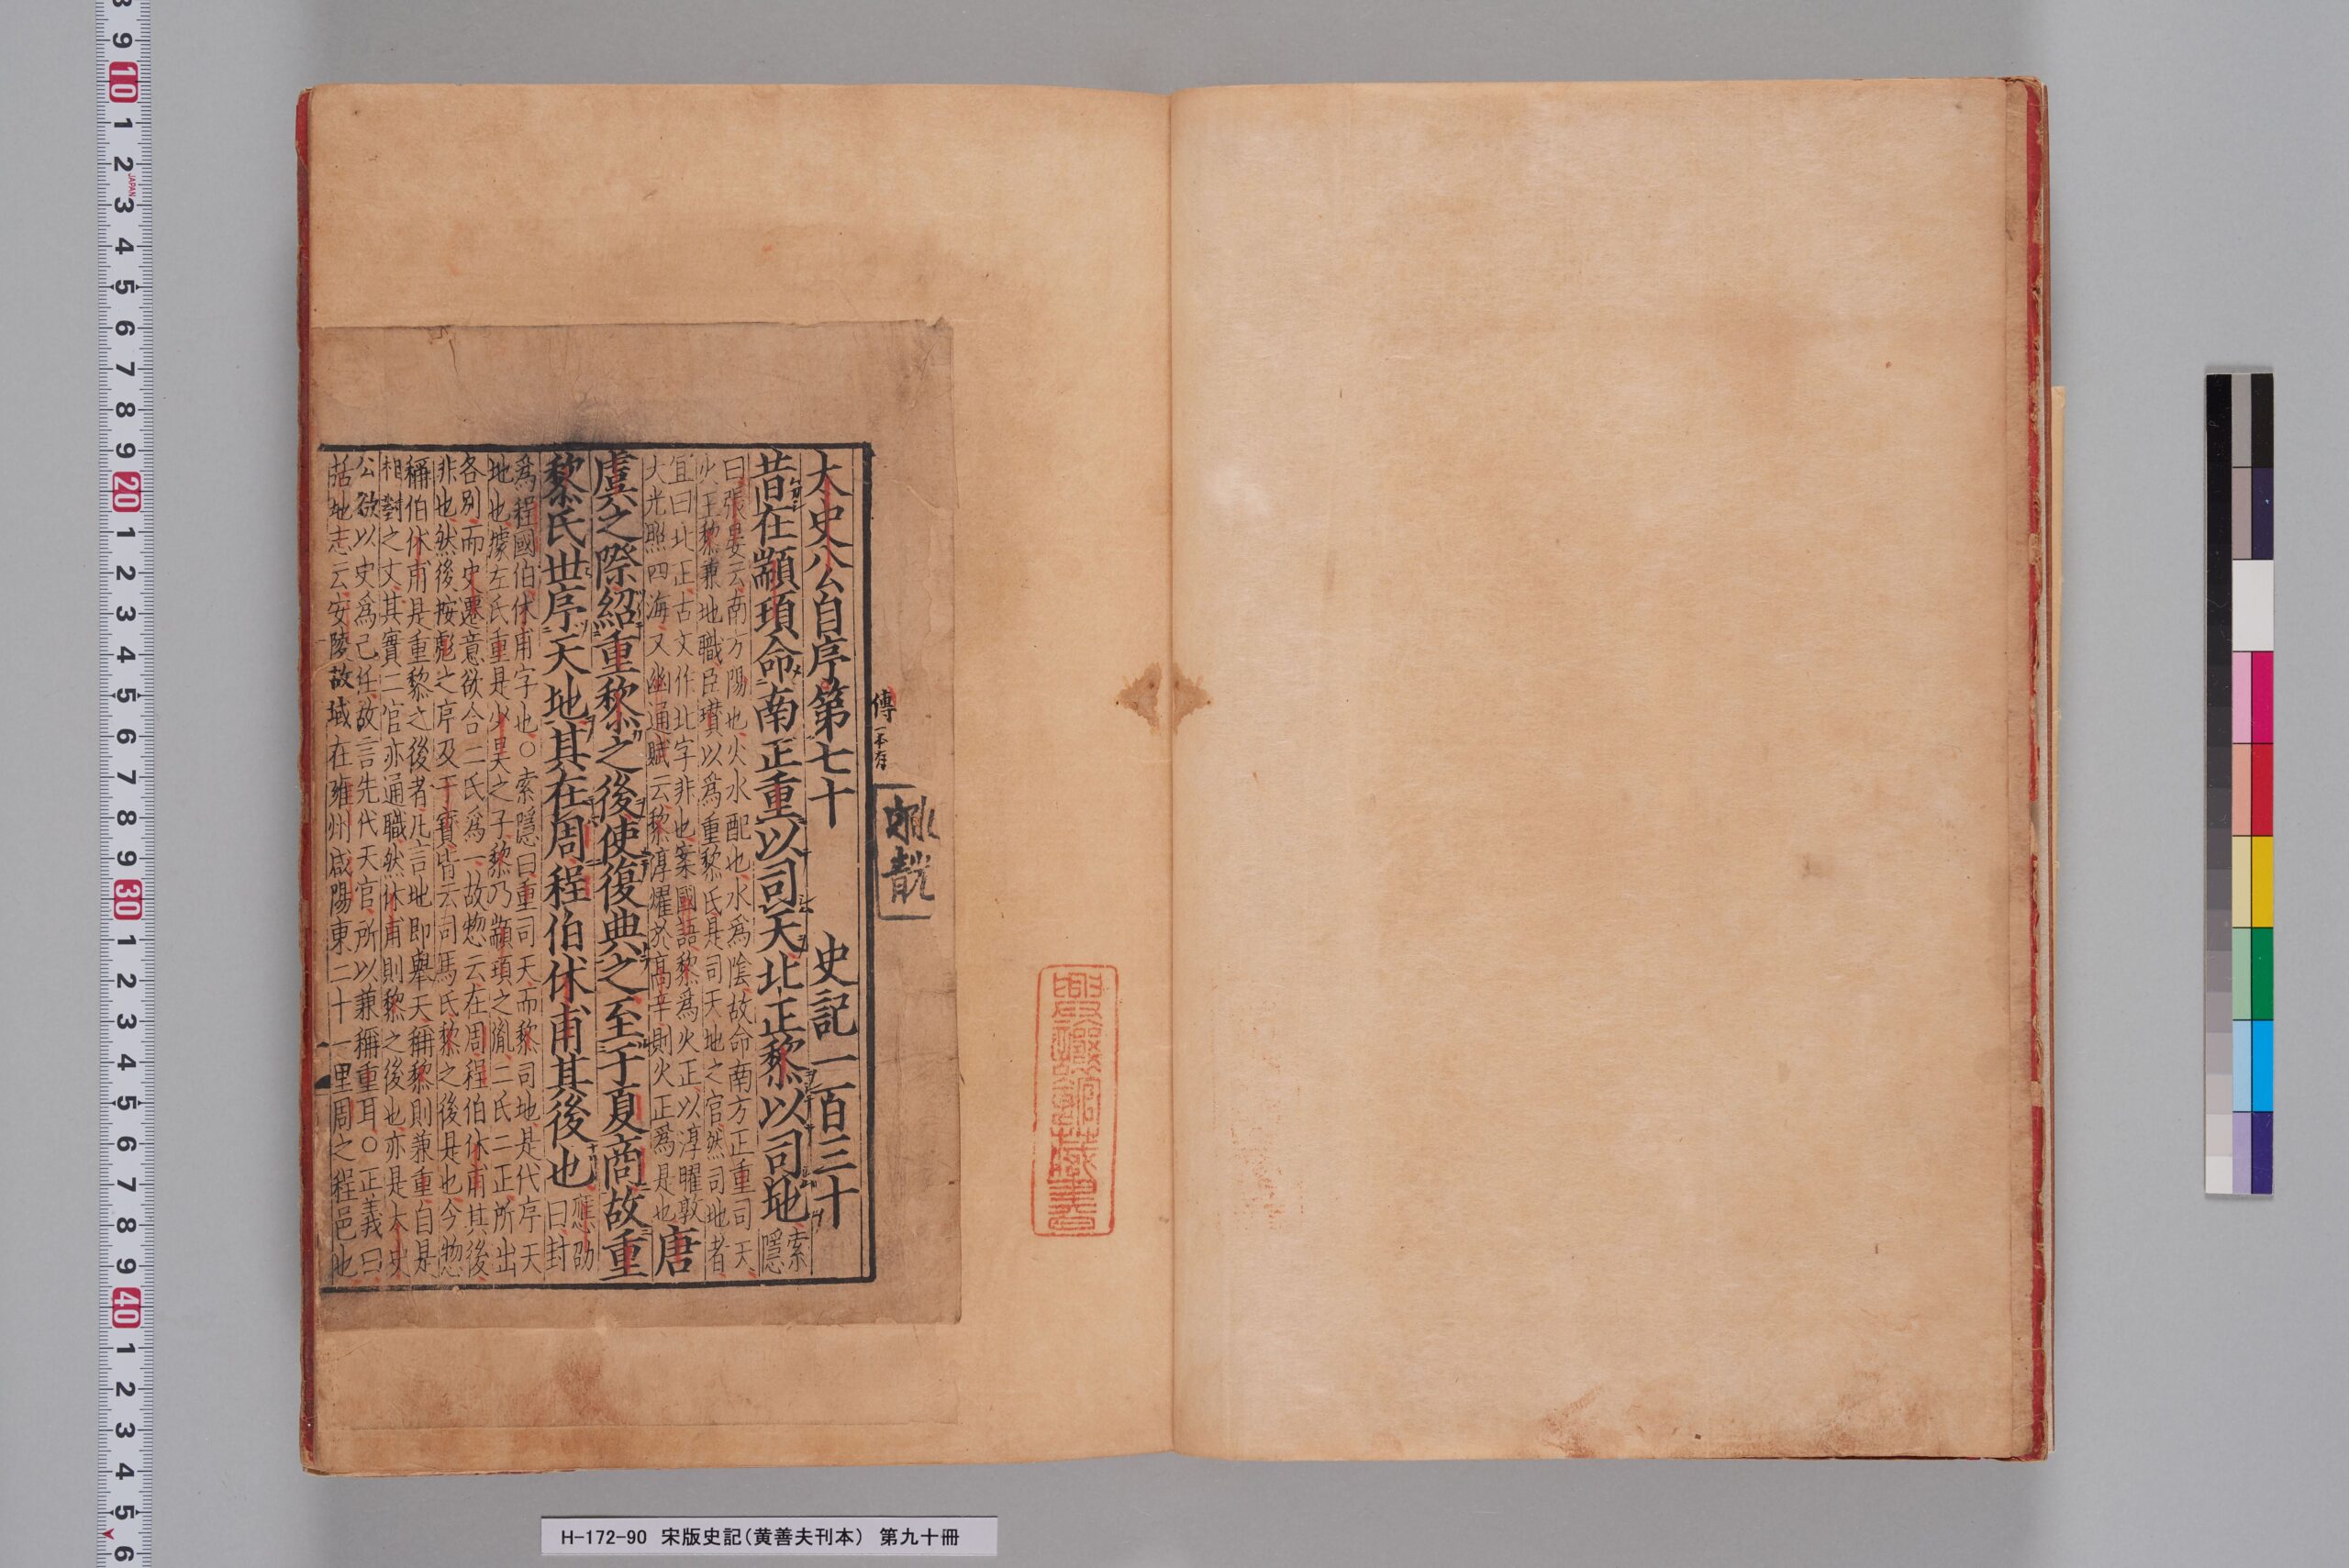 太史公自序第七十　史記一百三十
傳一本有
昔在顓頊命南正重以司天北正黎以司地索隱
曰張晏云南方陽也火水配也水爲陰故命南方正重司天
火正黎兼地職臣瓚以爲重黎氏是司天地之官然司地者
宜曰北正古文作北字非也案國語黎爲火正以淳曜敦
大光照四海又幽通賦云黎淳耀於高辛則火正爲是也唐
虞之際紹重黎之後使復典之至于夏商故重
黎氏世序天地其在周程伯休甫其後也應劭曰封
爲程國伯休甫字也○索隱曰重司天而黎司地是代序天
地也據左氏重是少昊之子黎乃顓頊之胤二氏二正所出
各別而史遷意欲合二氏爲一故惣云在周程伯休甫其後
非也然後按彪之序及干寶皆云司馬氏黎之後是也今惣
稱伯休甫是重黎之後者凡言地即舉天稱黎則兼重自是
相對之文其實二官亦通職然休甫則黎之後也亦是太史
公欲以史爲己任故言先代天官所以兼稱重耳○正義曰
括地志云安陵故城在雍州咸陽東二十一里周之程邑也
H-172-90　宋版史記（黄善夫刊本）　第九十冊
JAPAN